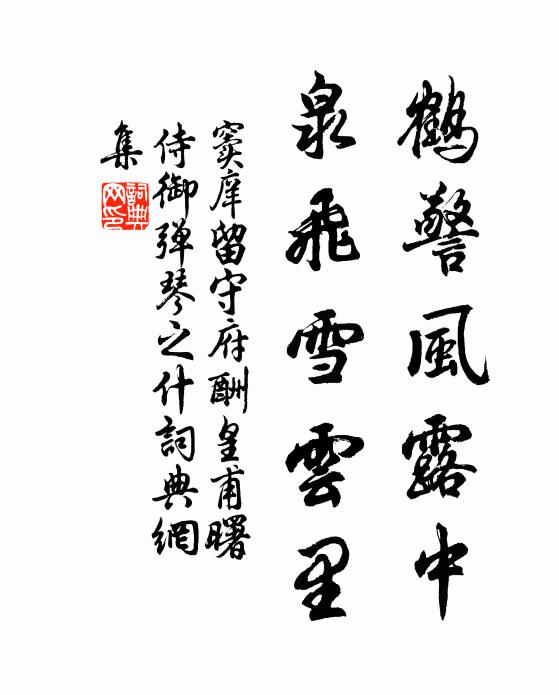 鶴警風露中
泉飛雪雲里
竇庠留守府酬皇甫曙
侍御彈琴之什詞典網
集
詞典網印